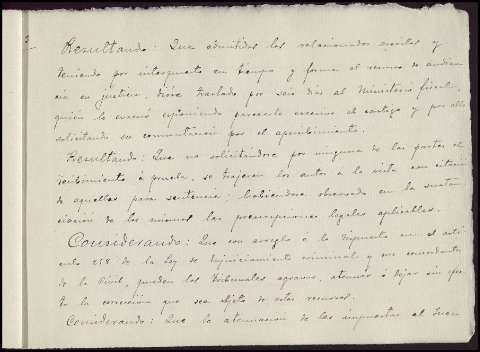 Resultando: Que admitidos los relacionados escritos y
teniendo por interpuesto en tiempo y forma el recurso de audien
cia en justicia, dióse traslado por seis dias al Ministerio fiscal,
quién lo evacuó exponiendo parecerle excesivo el castigo y por ello
solicitando su conmutación por el apercibimiento.
Resultando: Que no solicitándose por ninguna de las partes el
recibimiento á prueba, se trajeron los autos á la vista con citación
de aquellas para sentencia; habiéndose observado en la sustan
ciación de los mismos las prescripciones legales aplicables.
Considerando: Que con arreglo á lo dispuesto en el artí
culo 258 de la Ley de Enjuiciamiento criminal y sus concordantes
de la Civil, pueden los Tribunales agravar, atenuar ó dejar sin efec
to la corrección que sea objeto de estos recursos.
Considerando: Que la atenuación de las impuestas al